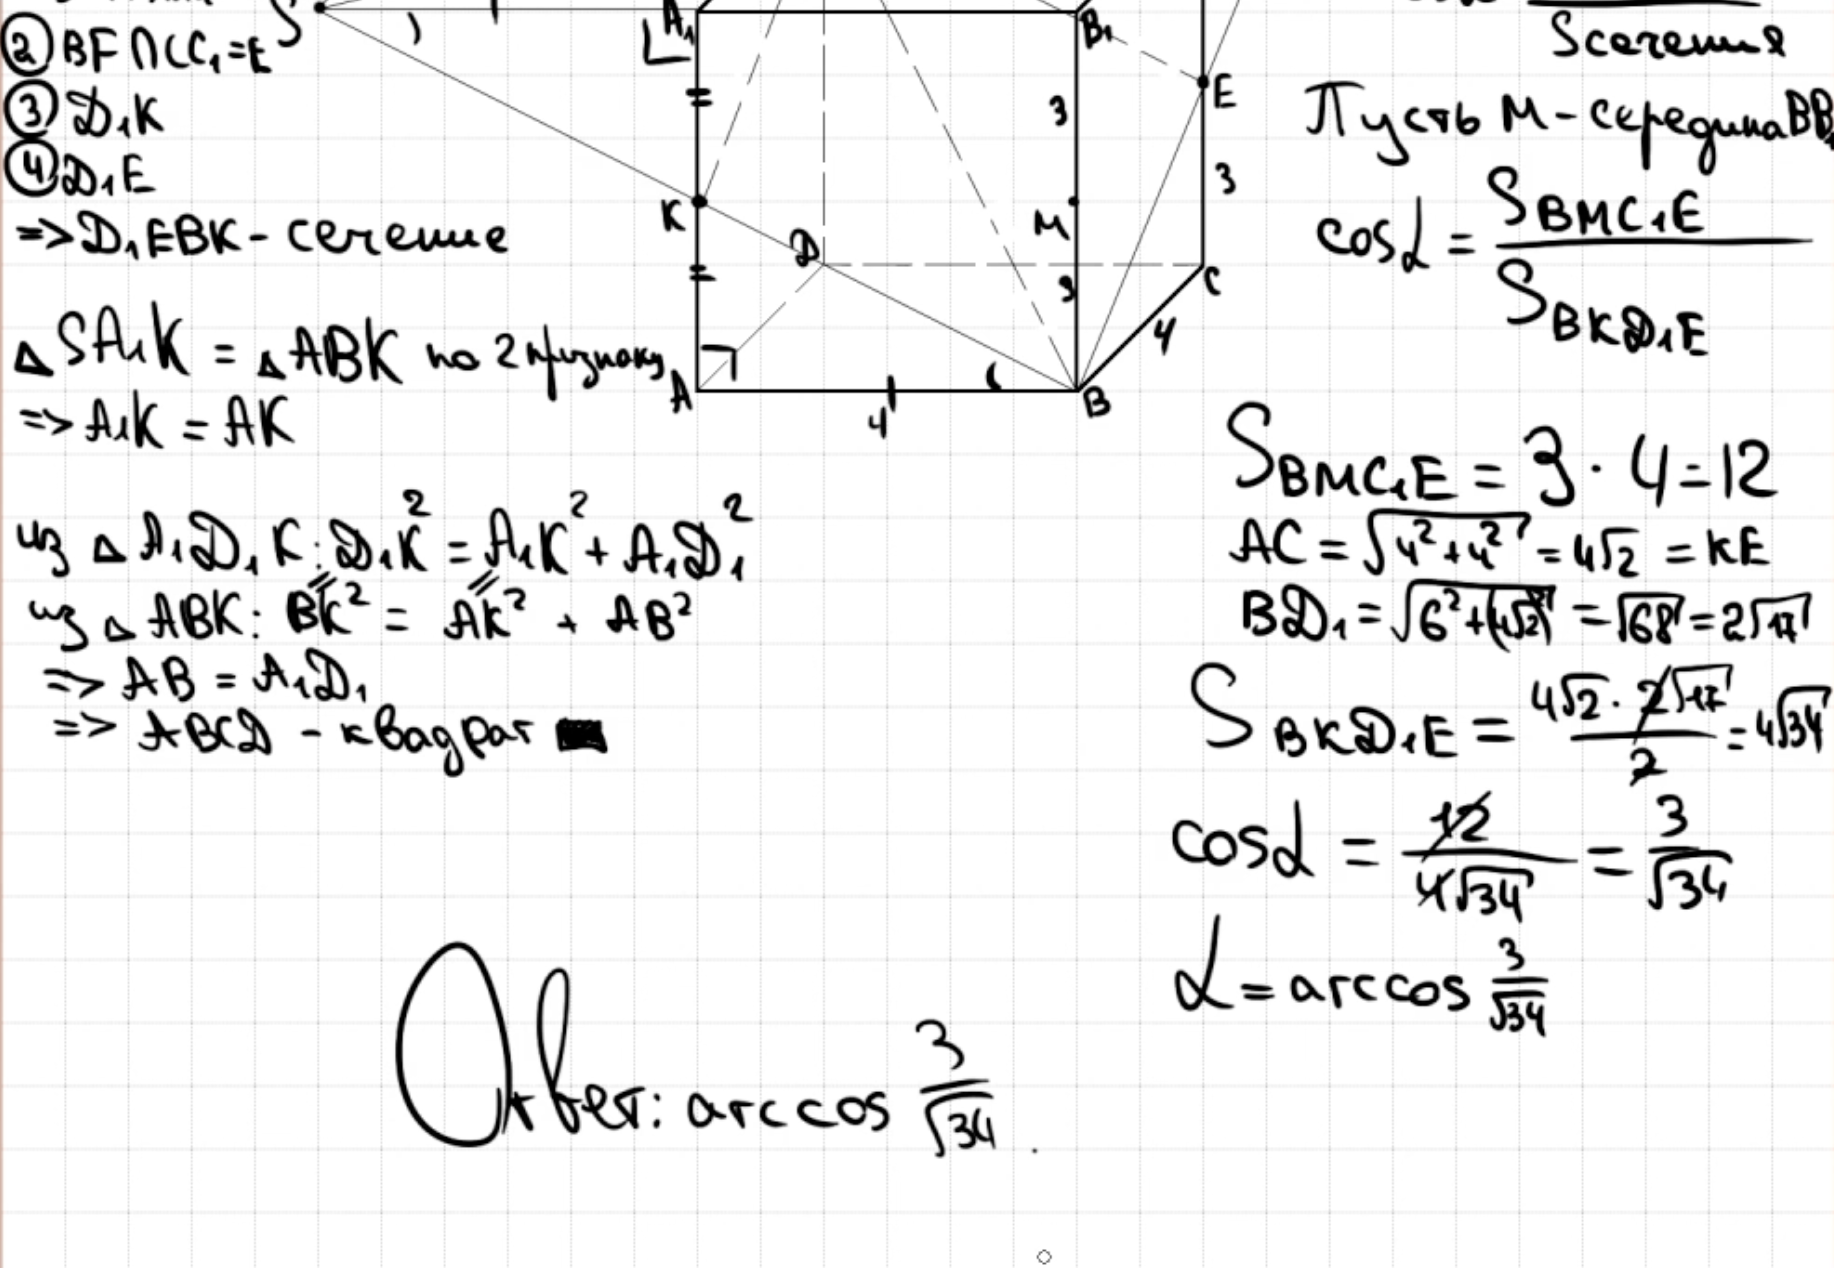 ② BF∩CC₁=E
③ D₁K
④ D₁E
=> D₁EBK - сечение
△SA₁K = △ABK по 2 признаку
=> A₁K = AK
из △A₁D₁K: D₁K² = A₁K² + A₁D₁²
из △ABK: BK² = AK² + AB²
=> AB = A₁D₁
=> ABCD - квадрат
S
A₁
B₁
E
3
3
K
M
D
3
C
4
A
B
4
Sсечения
Пусть M - середина BB₁
cosα = S_BMC₁E / S_BKD₁E
S_BMC₁E = 3 · 4 = 12
AC = √(4²+4²) = 4√2 = KE
BD₁ = √(6²+(4√2)²) = √68 = 2√17
S_BKD₁E = (4√2 · 2√17)/2 = 4√34
cosα = 12/(4√34) = 3/√34
α = arccos 3/√34
Ответ: arccos 3/√34.